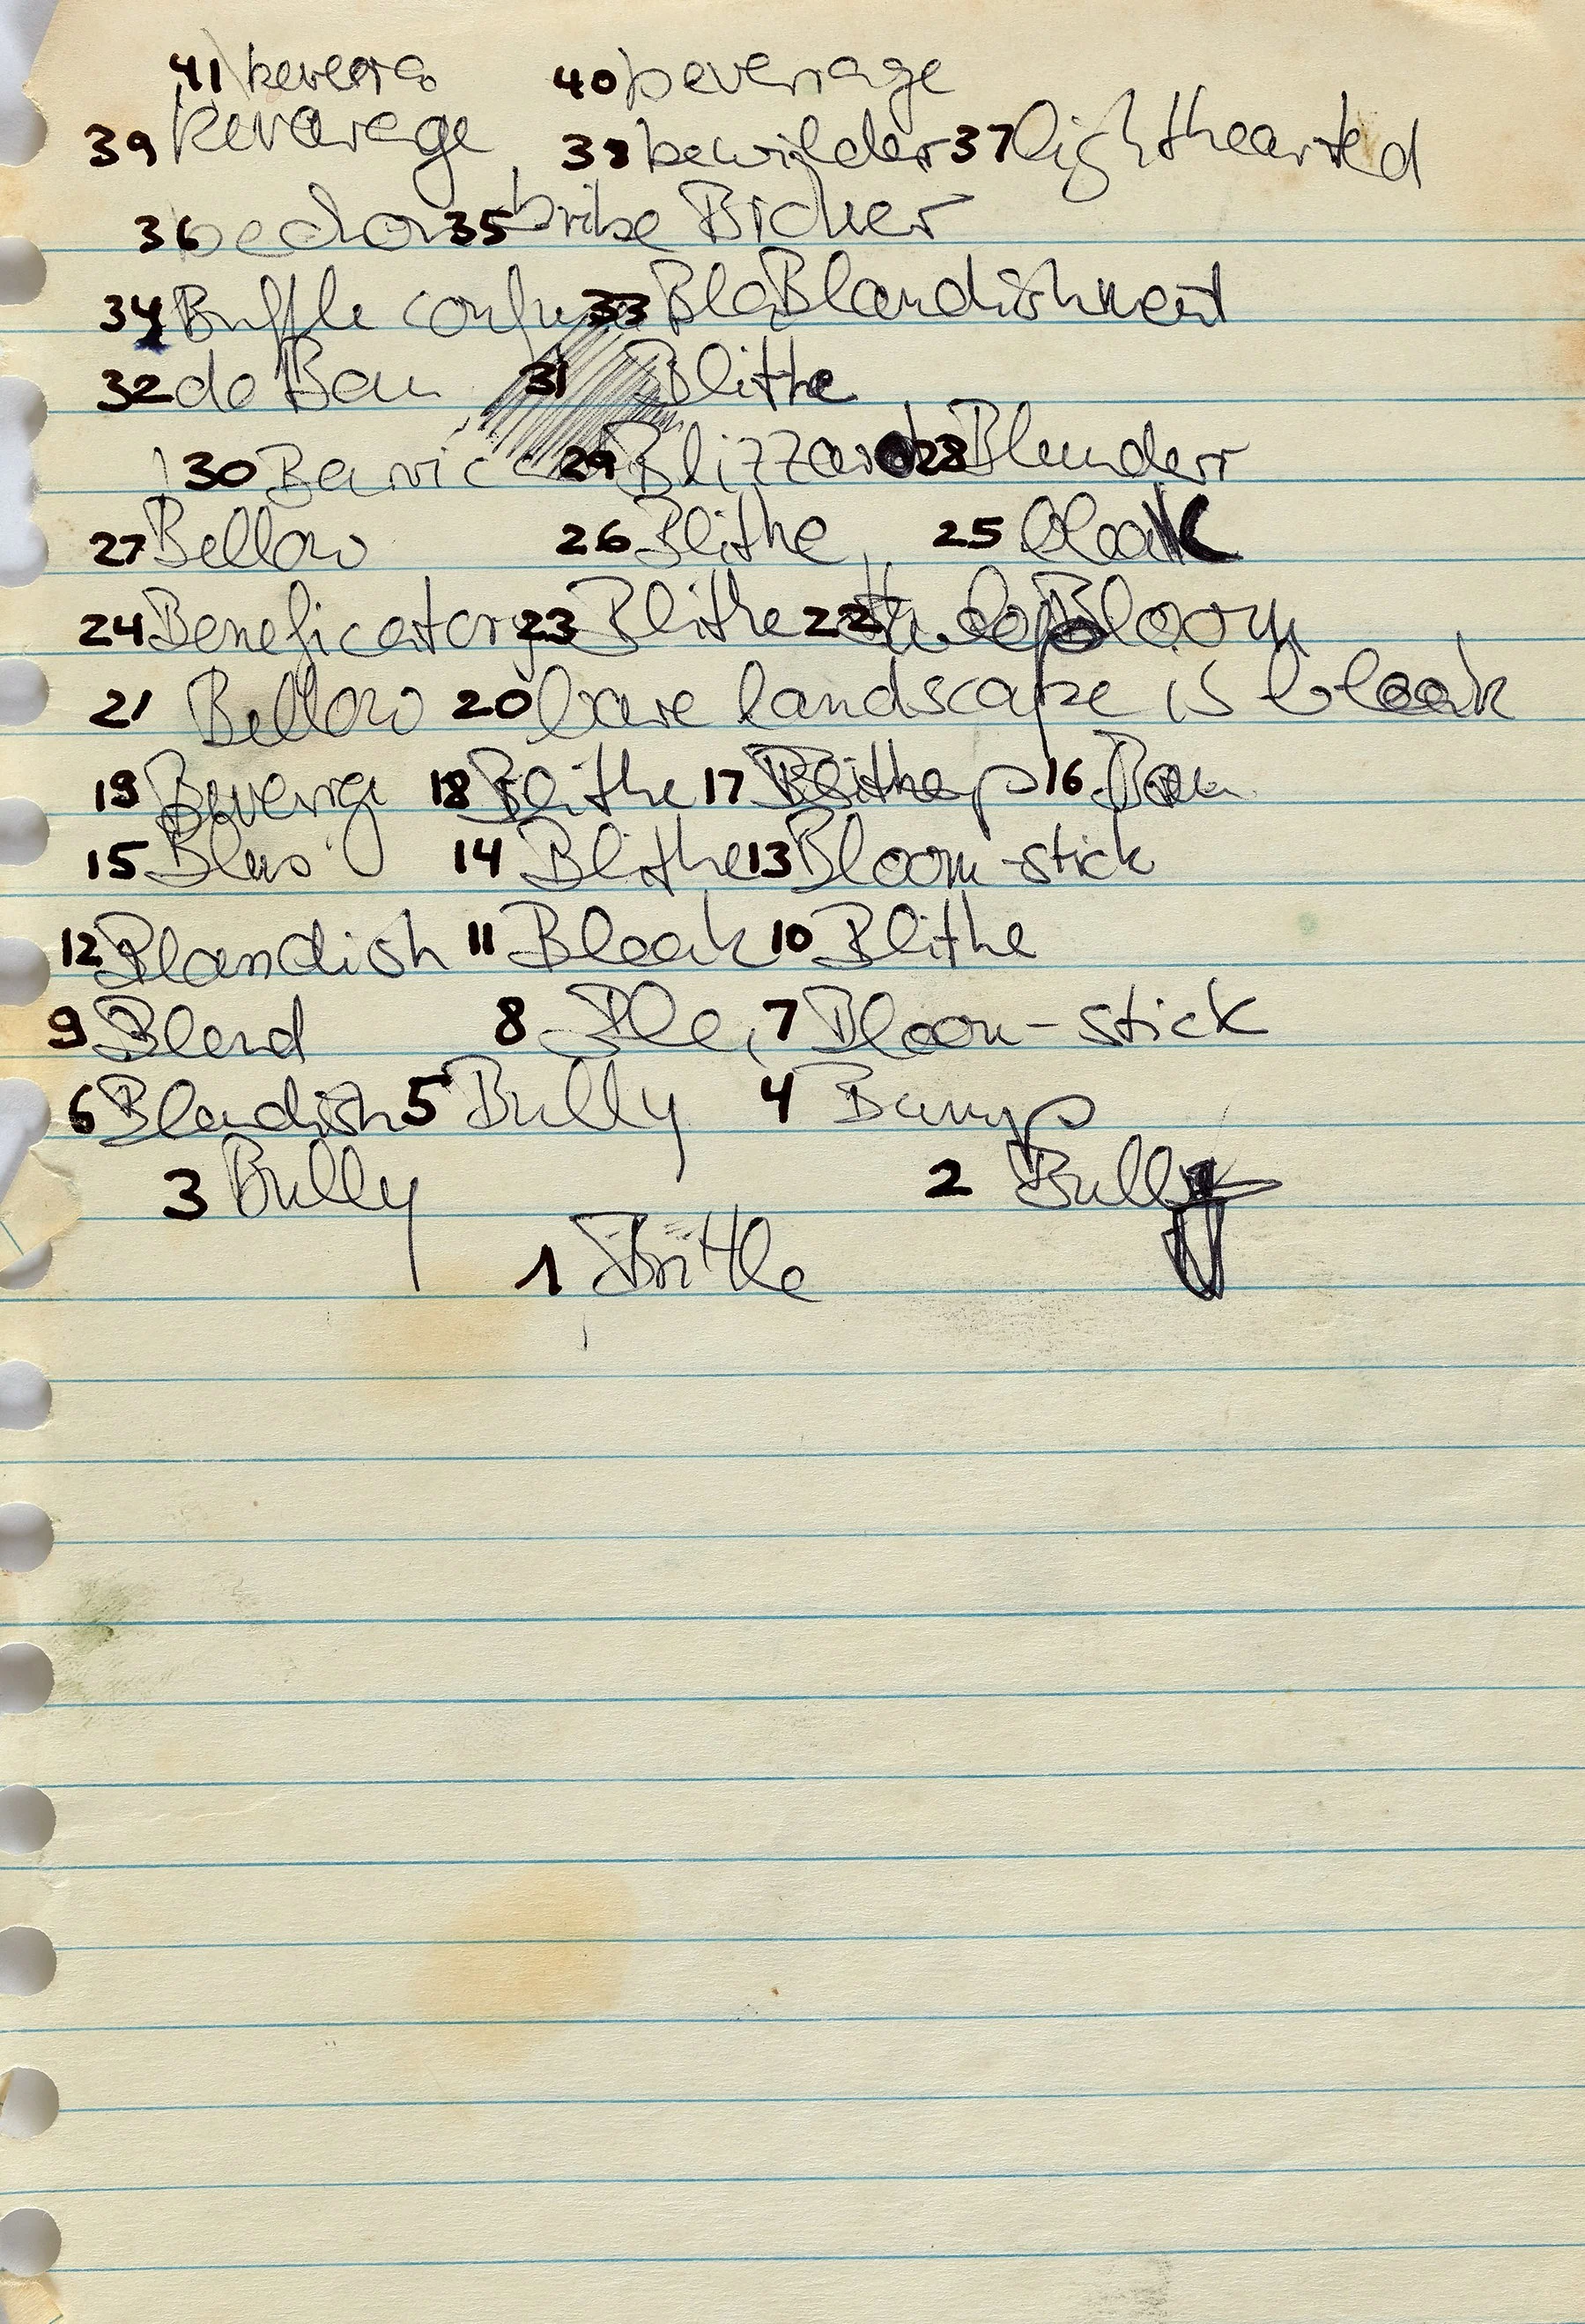 41 bevera 40 beverrage
39 Bevarage 38 bewilder 37 lighthearted
36 35 bribe Bicker
34 Buffle confuse 33 Bla Blandishment
32 do Ban 31 Blithe
30 29 Blizzard 28 Blunderr
27 Bellow 26 Blithe 25 bleak
24 Beneficatory 23 Blithe 22 Bloom
21 Bellow 20 bare landscape is bleak
19 18 Blithe 17 16 Ban
15 14 Blithe 13 Bloom-stick
12 Blandish 11 Bleak 10 Blithe
9 Blend 8 Ble 7 Bloom-stick
6 Blandish 5 Bully 4 Bump
3 Bully 2 Bully
1 Brittle